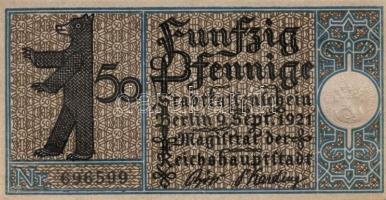 Funfzig
50 Pfennige
Stadtkassenschein
Berlin 9. Sept. 1921
Magistrat der
Reichshauptstadt
Nr. 696599